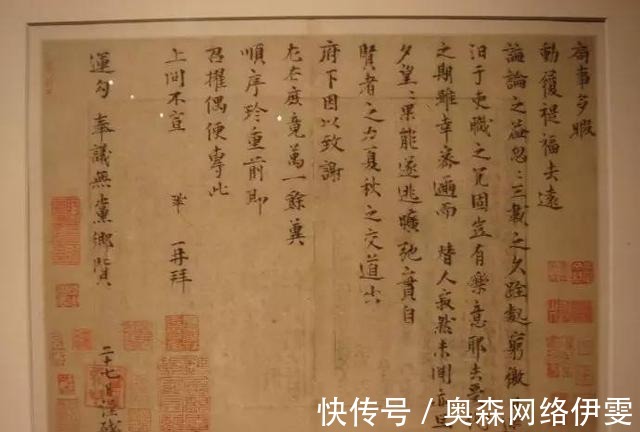 局事多暇
動履禔福去遠
誨論之益忽〻三載之久跧處窮徼
汩于吏職之冗固豈有樂意耶去
之期雖幸密邇而替人寂然未聞亦旦
夕望〻果能遂逃曠弛實自
賢者之力夏秋之交道出
府下因以致謝
左右庶竟萬一餘冀
順序珍重前即
召擢偶便專此
上問不宣 鞏 再拜
運勾奉議無黨鄉賢
二十七日謹
快传号/奥森网络伊雯